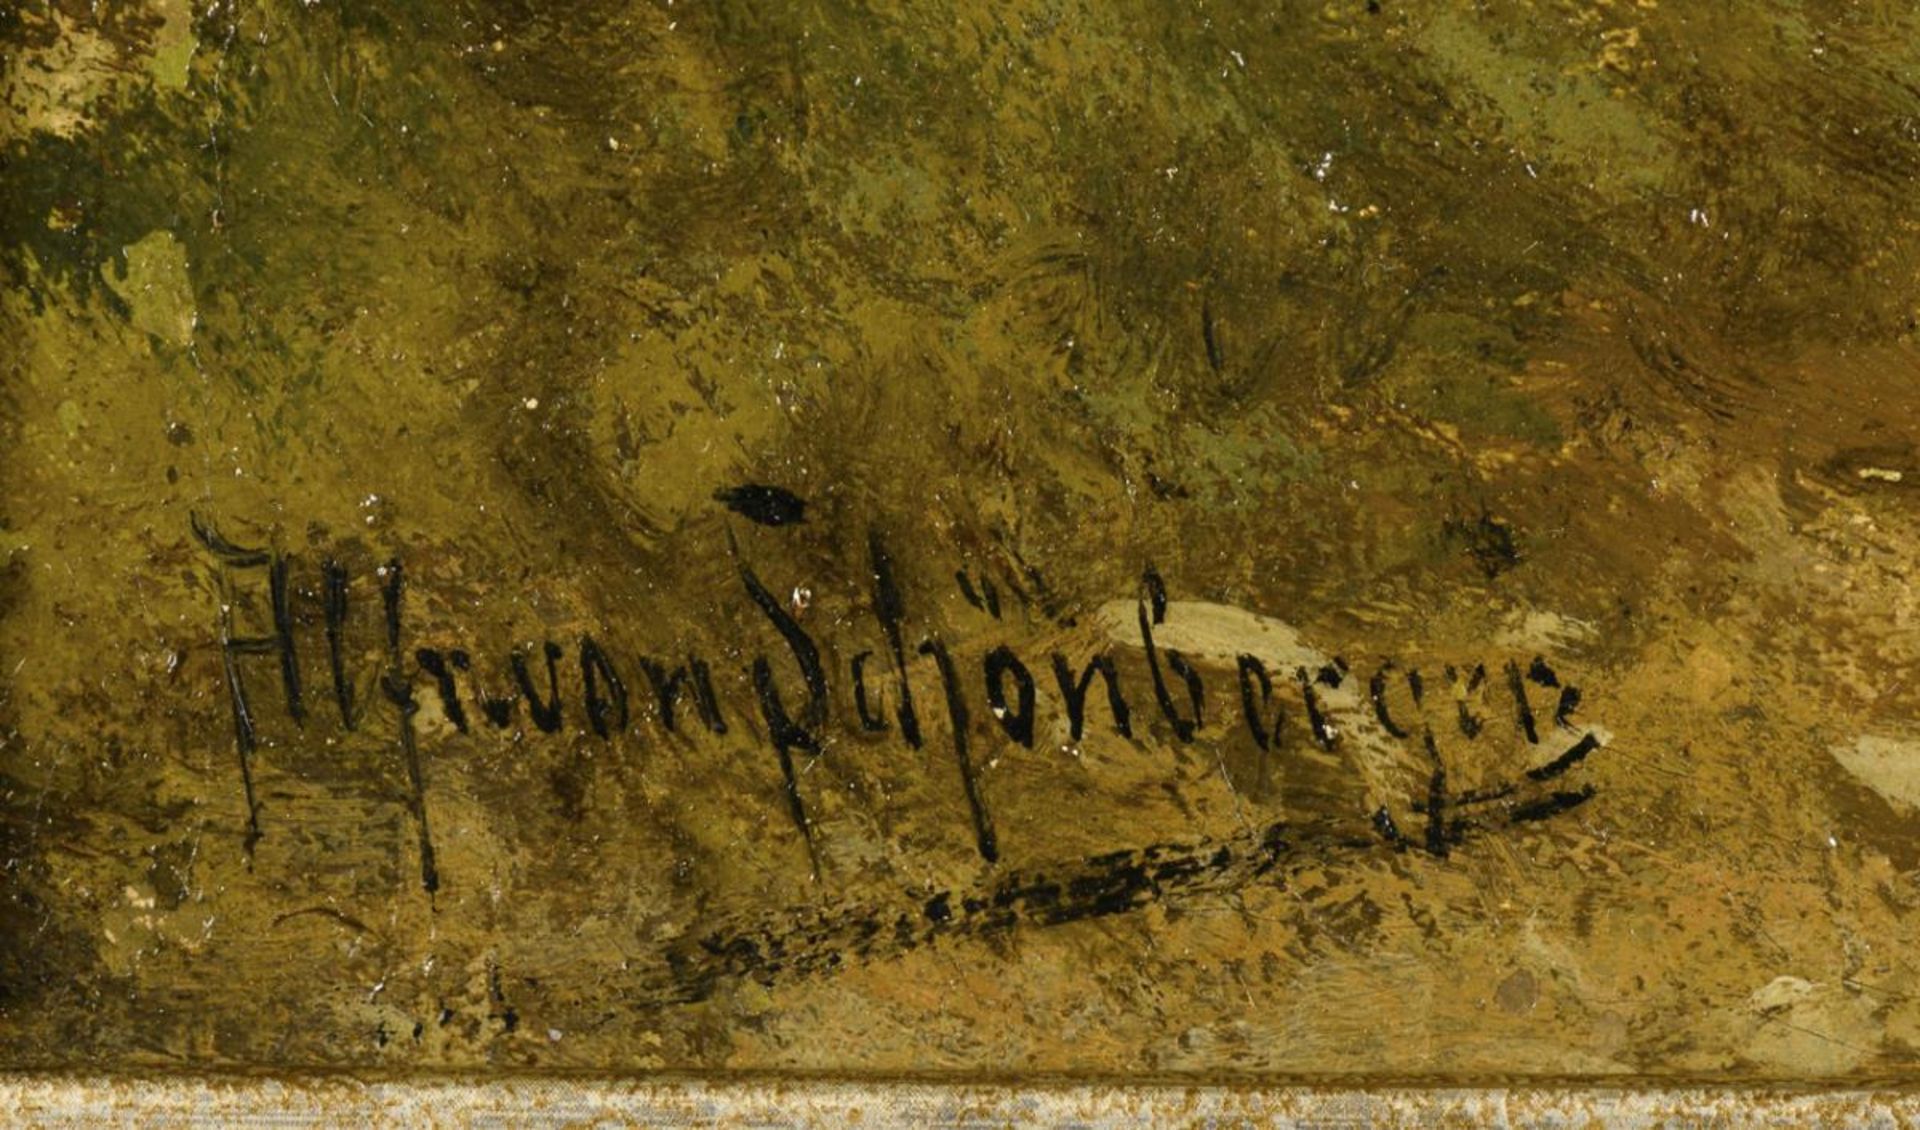 Alfr. von Schönberger